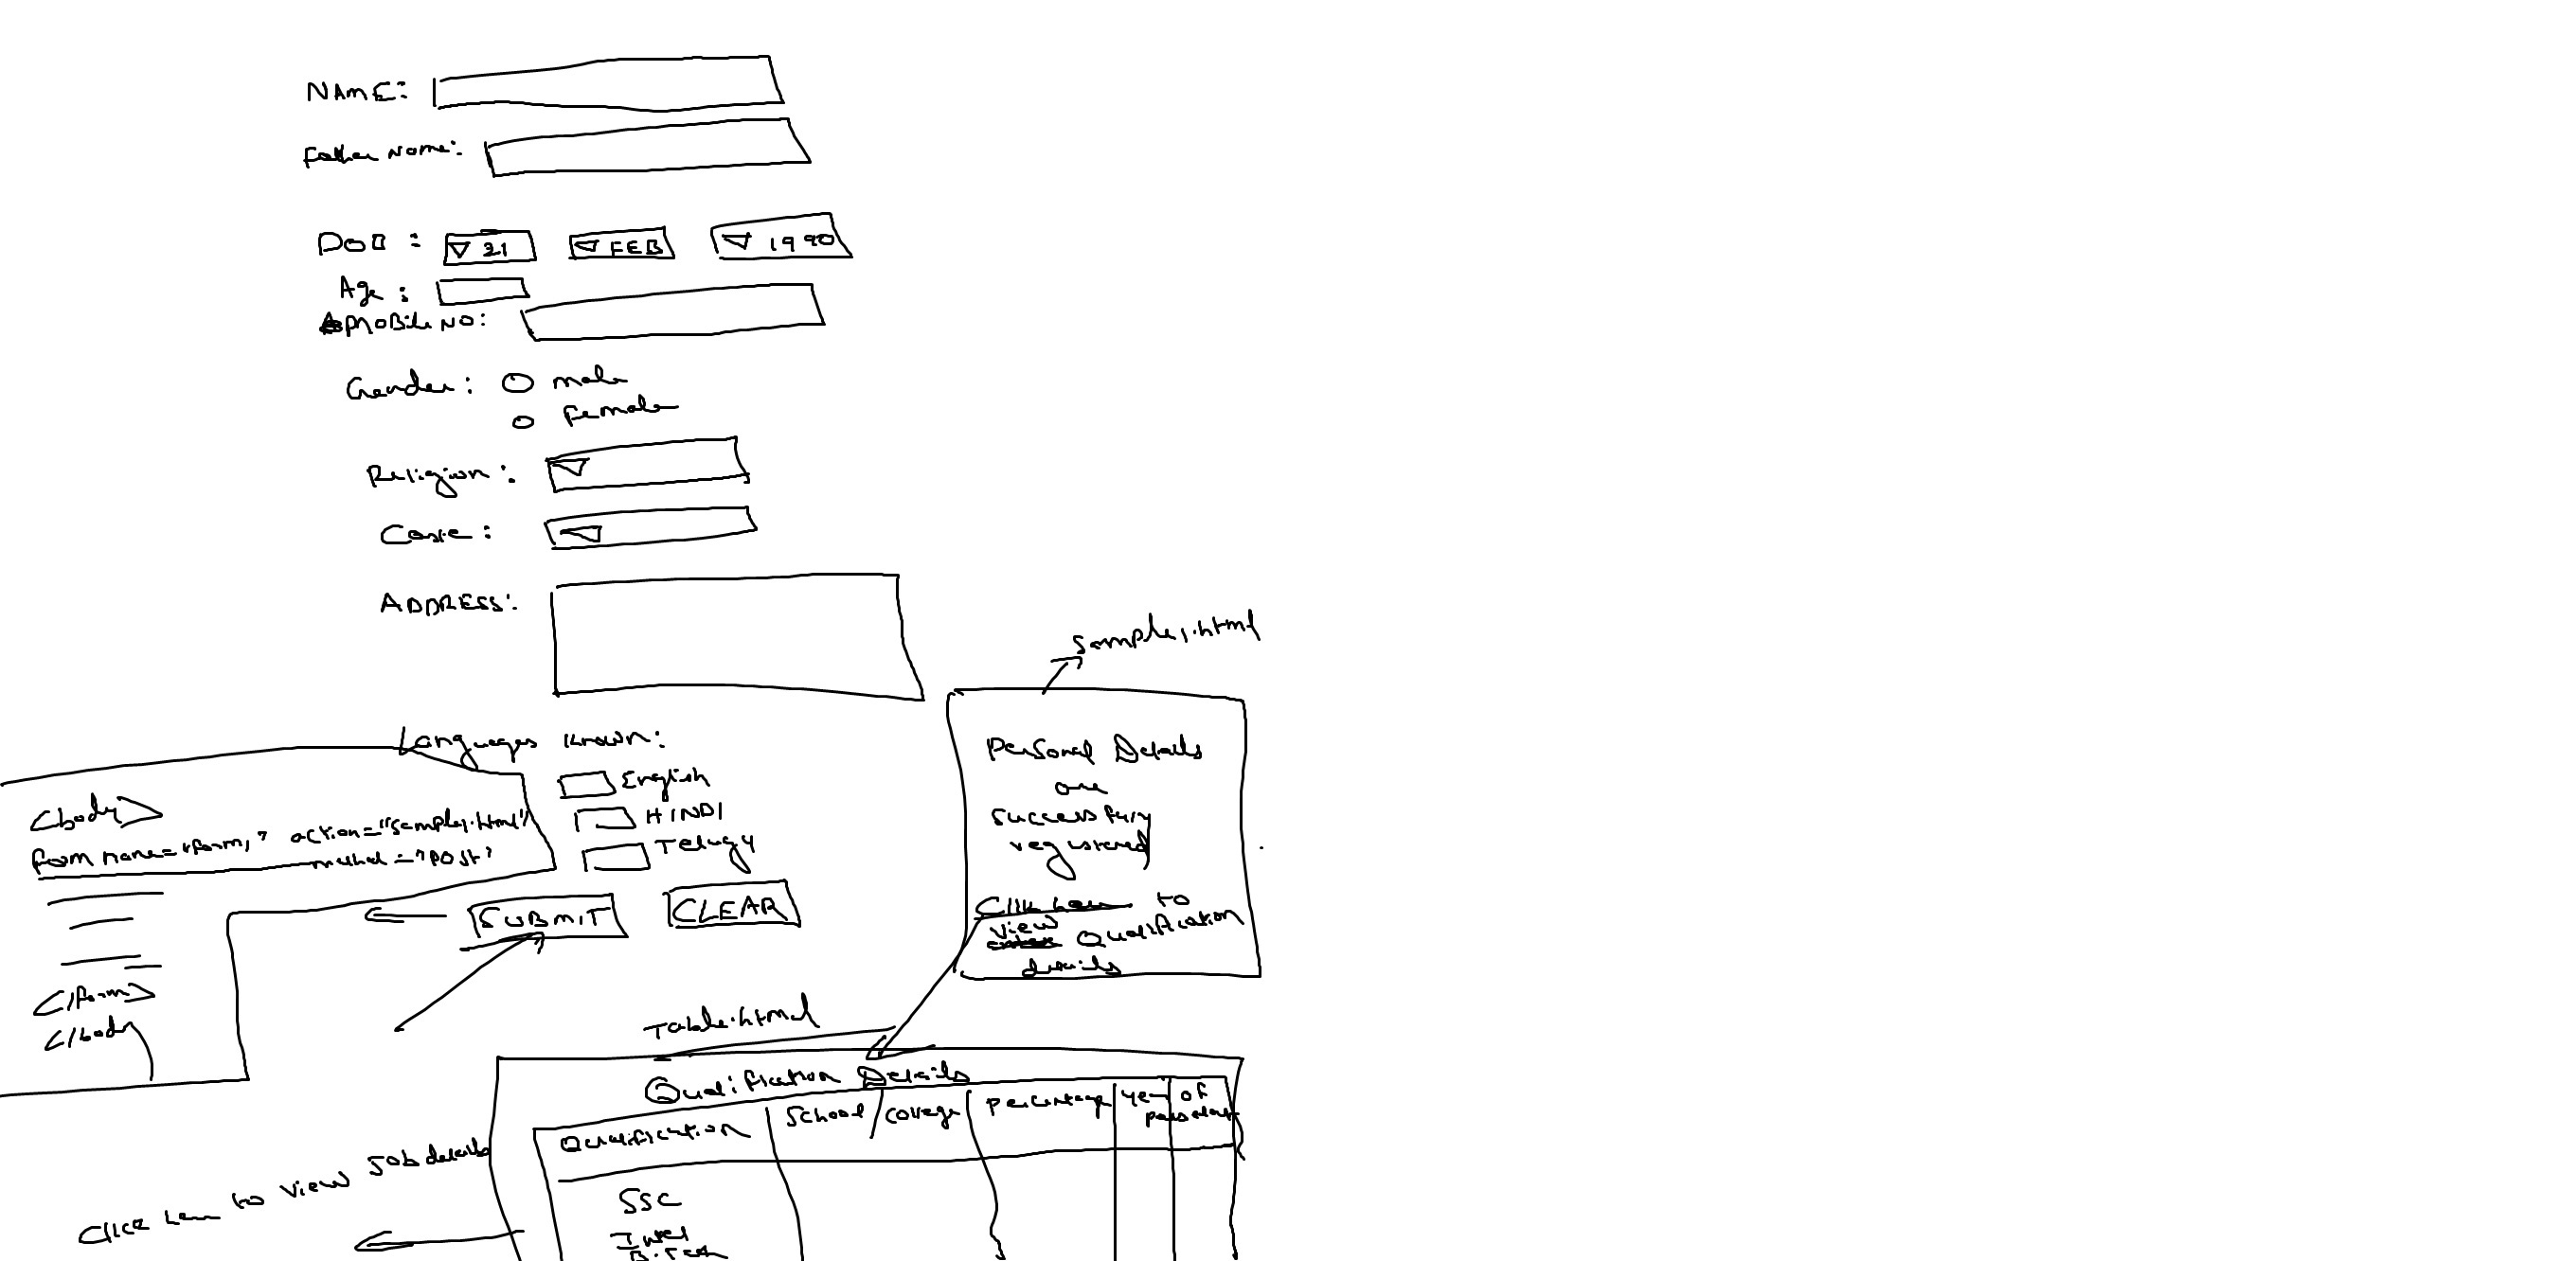 NAME:
Father Name:
DOB :
21
FEB
1990
Age :
Mobile NO:
Gender: male
Female
Religion :
Caste :
ADDRESS:
Languages Known:
English
HINDI
Telugu
SUBMIT
CLEAR
<body>
form name="form1" action="sample1.html"
method="post"
</form>
</body
sample1.html
Personal Details
are
successfully
registered
Click here to
view Qualification
details
Table.html
Qualification Details
Qualification
School/College
Percentage
Year of
passout
SSC
Inter
B.Tech
Click here to view Job details